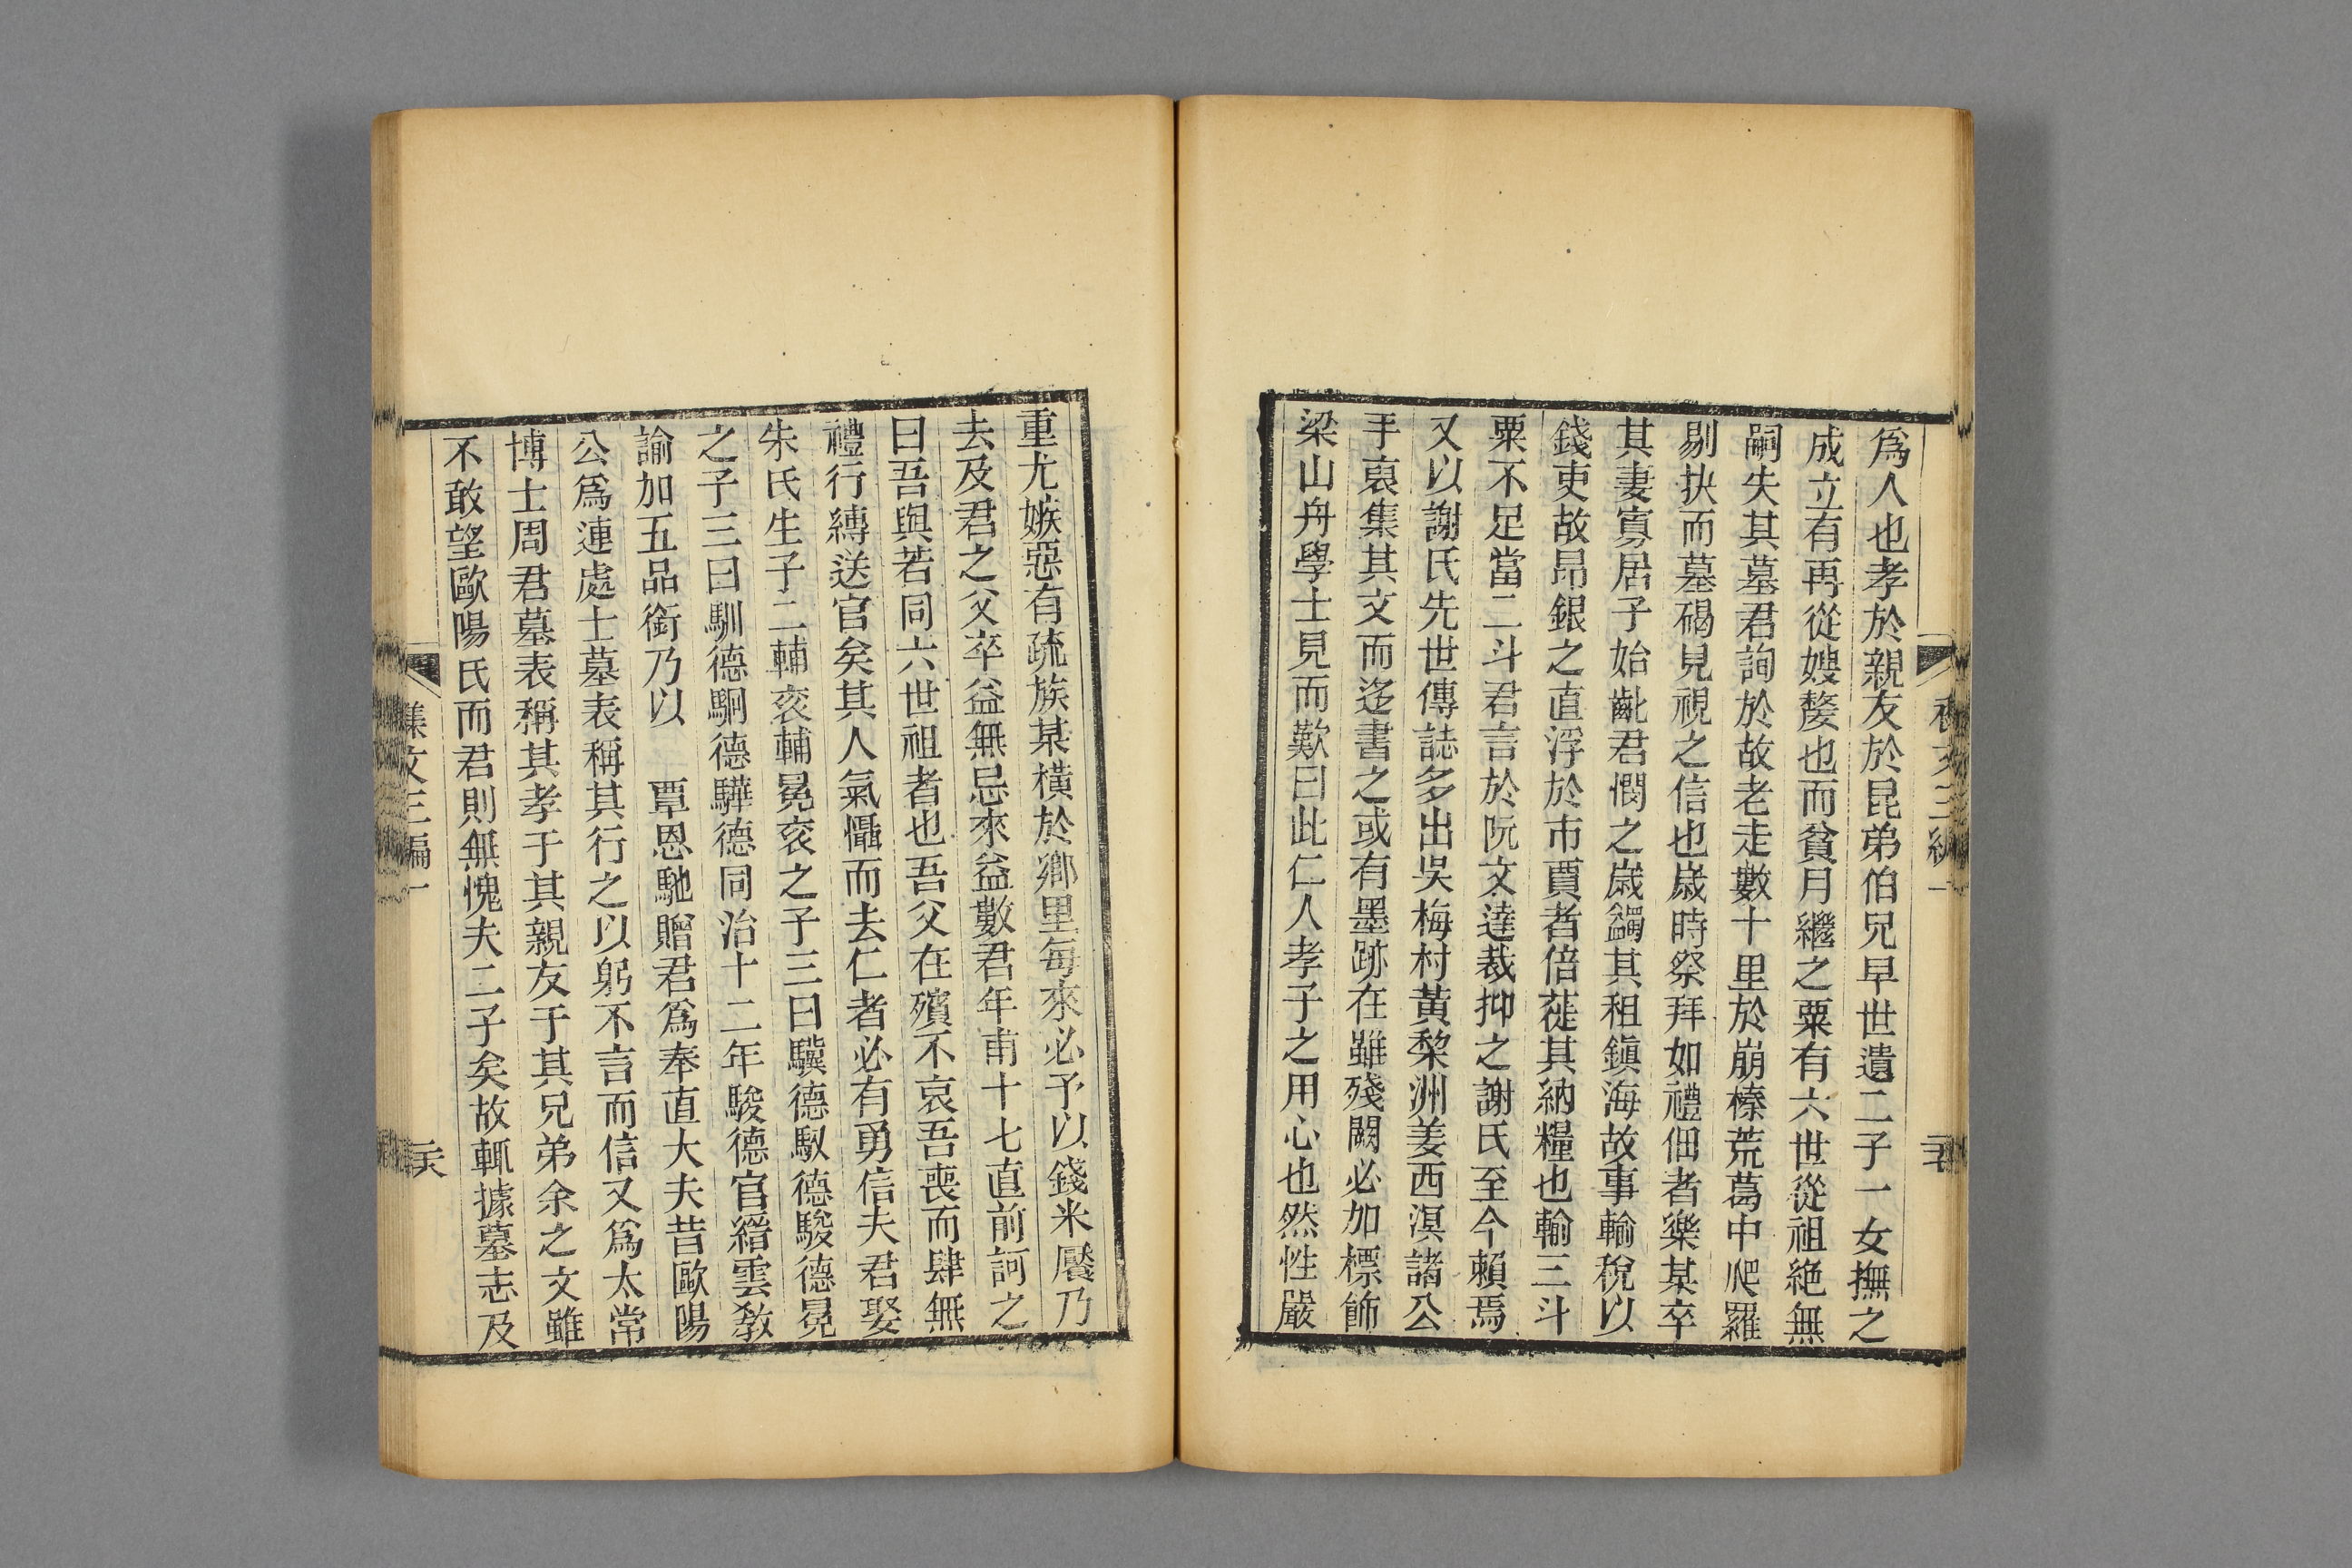 爲人也孝於親友於昆弟伯兄早世遺二子一女撫之
成立有再從嫂嫠也而貧月繼之粟有六世從祖絶無
嗣失其墓君詢於故老走數十里於崩榛荒葛中爬羅
剔抉而墓碣見視之信也歲時祭拜如禮佃者樂某卒
其妻寡居子始齔君憫之歲蠲其租鎭海故事輸稅以
錢吏故昂銀之直浮於市賈者倍蓰其納糧也輸三斗
粟不足當二斗君言於阮文達裁抑之謝氏至今賴焉
又以謝氏先世傳誌多出吳梅村黃棃洲姜西溟諸公
手裒集其文而迻書之或有墨跡在雖殘闕必加標飾
梁山舟學士見而歎曰此仁人孝子之用心也然性嚴
重尤嫉惡有疏族某橫於鄕里每來必予以錢米饜乃
去及君之父卒益無忌來益數君年甫十七直前訶之
曰吾與若同六世祖者也吾父在殯不哀吾喪而肆無
禮行縛送官矣其人氣懾而去仁者必有勇信夫君娶
朱氏生子二輔袞輔冕袞之子三曰驥德馭德駿德冕
之子三曰馴德駉德驊德同治十二年駿德官縉雲敎
諭加五品銜乃以　覃恩馳贈君爲奉直大夫昔歐陽
公爲連處士墓表稱其行之以躬不言而信又爲太常
博士周君墓表稱其孝于其親友于其兄弟余之文雖
不敢望歐陽氏而君則無愧夫二子矣故輒據墓志及
集文三編一